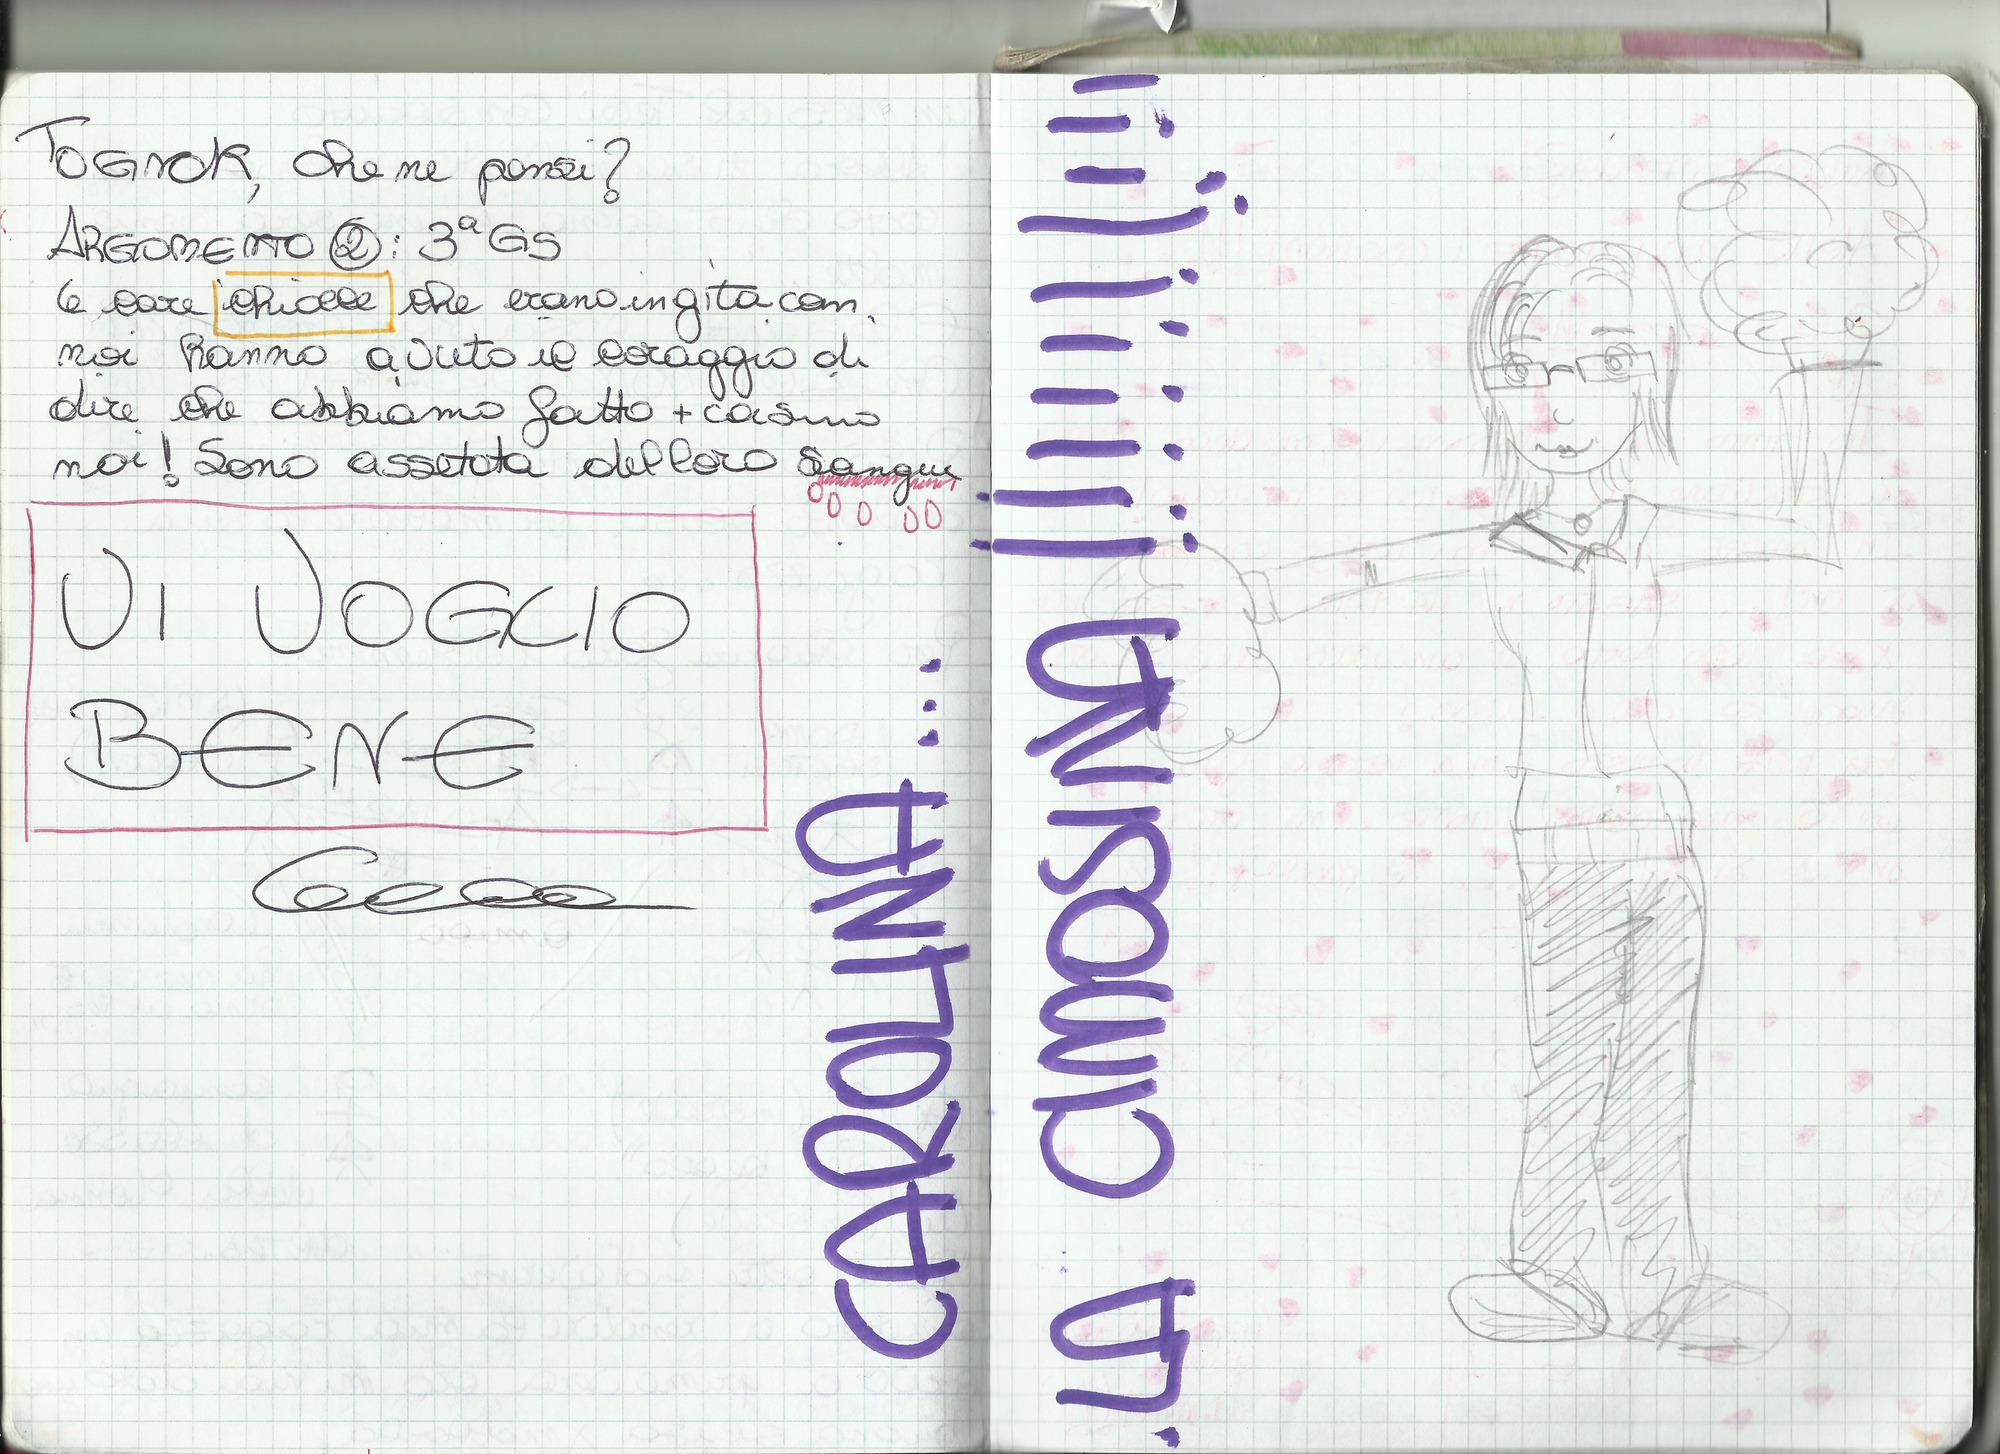 TOGNOK, che ne pensi?
ARGOMENTO 2: 3ª GS
Le care chicce che erano in gita con
noi hanno avuto il coraggio di
dire che abbiamo fatto + casino
noi! Sono assetata del loro sangue
VI VOGLIO
BENE
CAROLINA...
LA CIMOSINA!!!!!!!!!!!